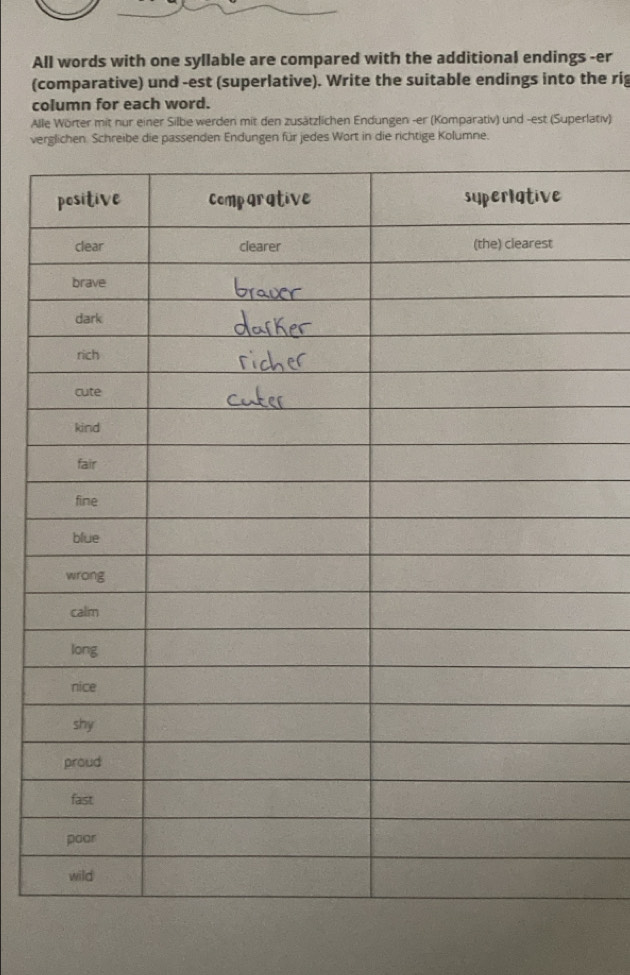 All words with one syllable are compared with the additional endings -er
(comparative) und -est (superlative). Write the suitable endings into the
column for each word.
Alle Wörter mit nur einer Silbe werden mit den zusätzlichen Endungen -er (Komparativ) und -est (Superlativ)
verglichen. Schreibe die passenden Endungen für jedes Wort in die richtige Kolumne.
positive comparative superlative
clear clearer (the) clearest
brave braver
dark darker
rich richer
cute cuter
kind
fair
fine
blue
wrong
calm
long
nice
shy
proud
fast
poor
wild